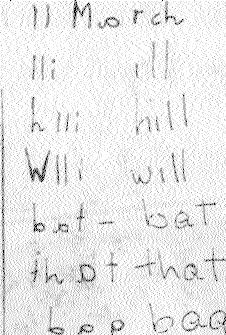 11 March
lli ill
hlli hill
Wlli will
bat - bat
that that